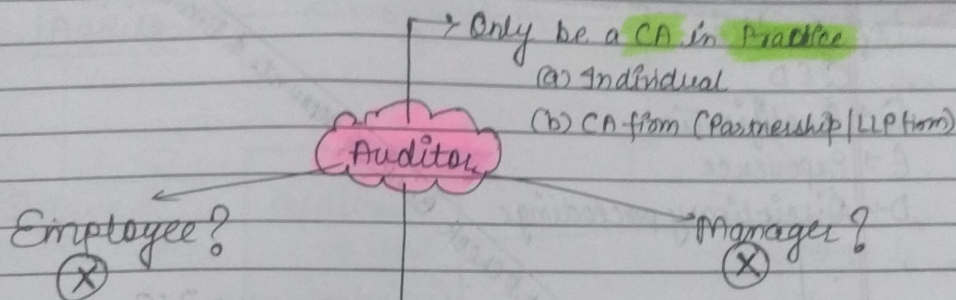 → Only be a CA in Practice
(a) Individual
(b) CA firm (Partnership/LLP firm)
Auditor
Employee?
Manager?
X
X